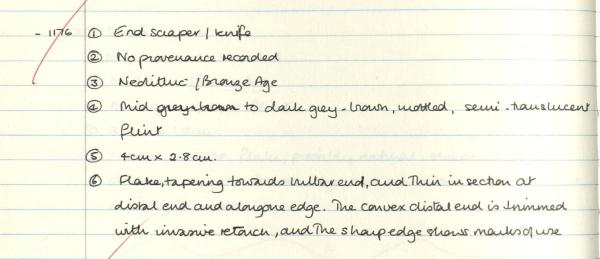 - 1176 ① End scraper / knife
② No provenance recorded
③ Neolithic / Bronze Age
④ Mid grey-brown to dark grey-brown, mottled, semi-translucent
flint
⑤ 4cm x 2.8cm.
⑥ Flake, tapering towards bulbar end, and thin in section at
distal end and along one edge. The convex distal end is trimmed
with invasive retouch, and the sharp edge shows marks of use